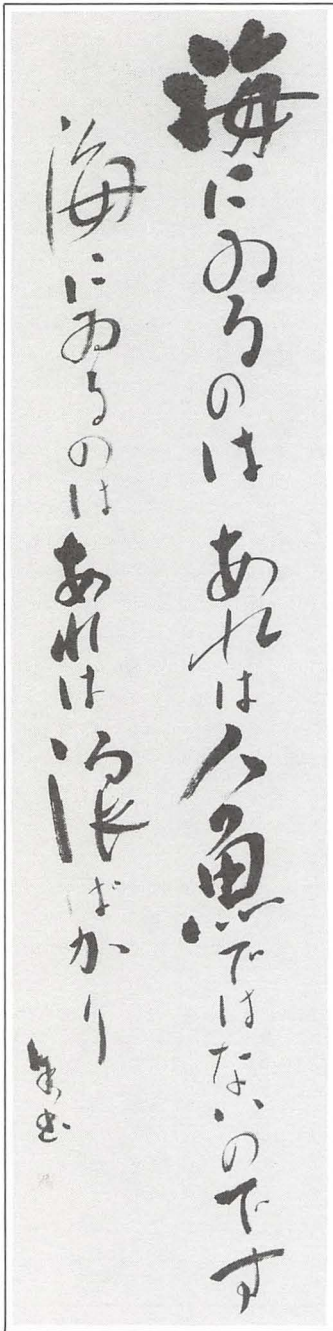 海にゐるのは あれは人魚ではないのです
海にゐるのは あれは浪ばかり